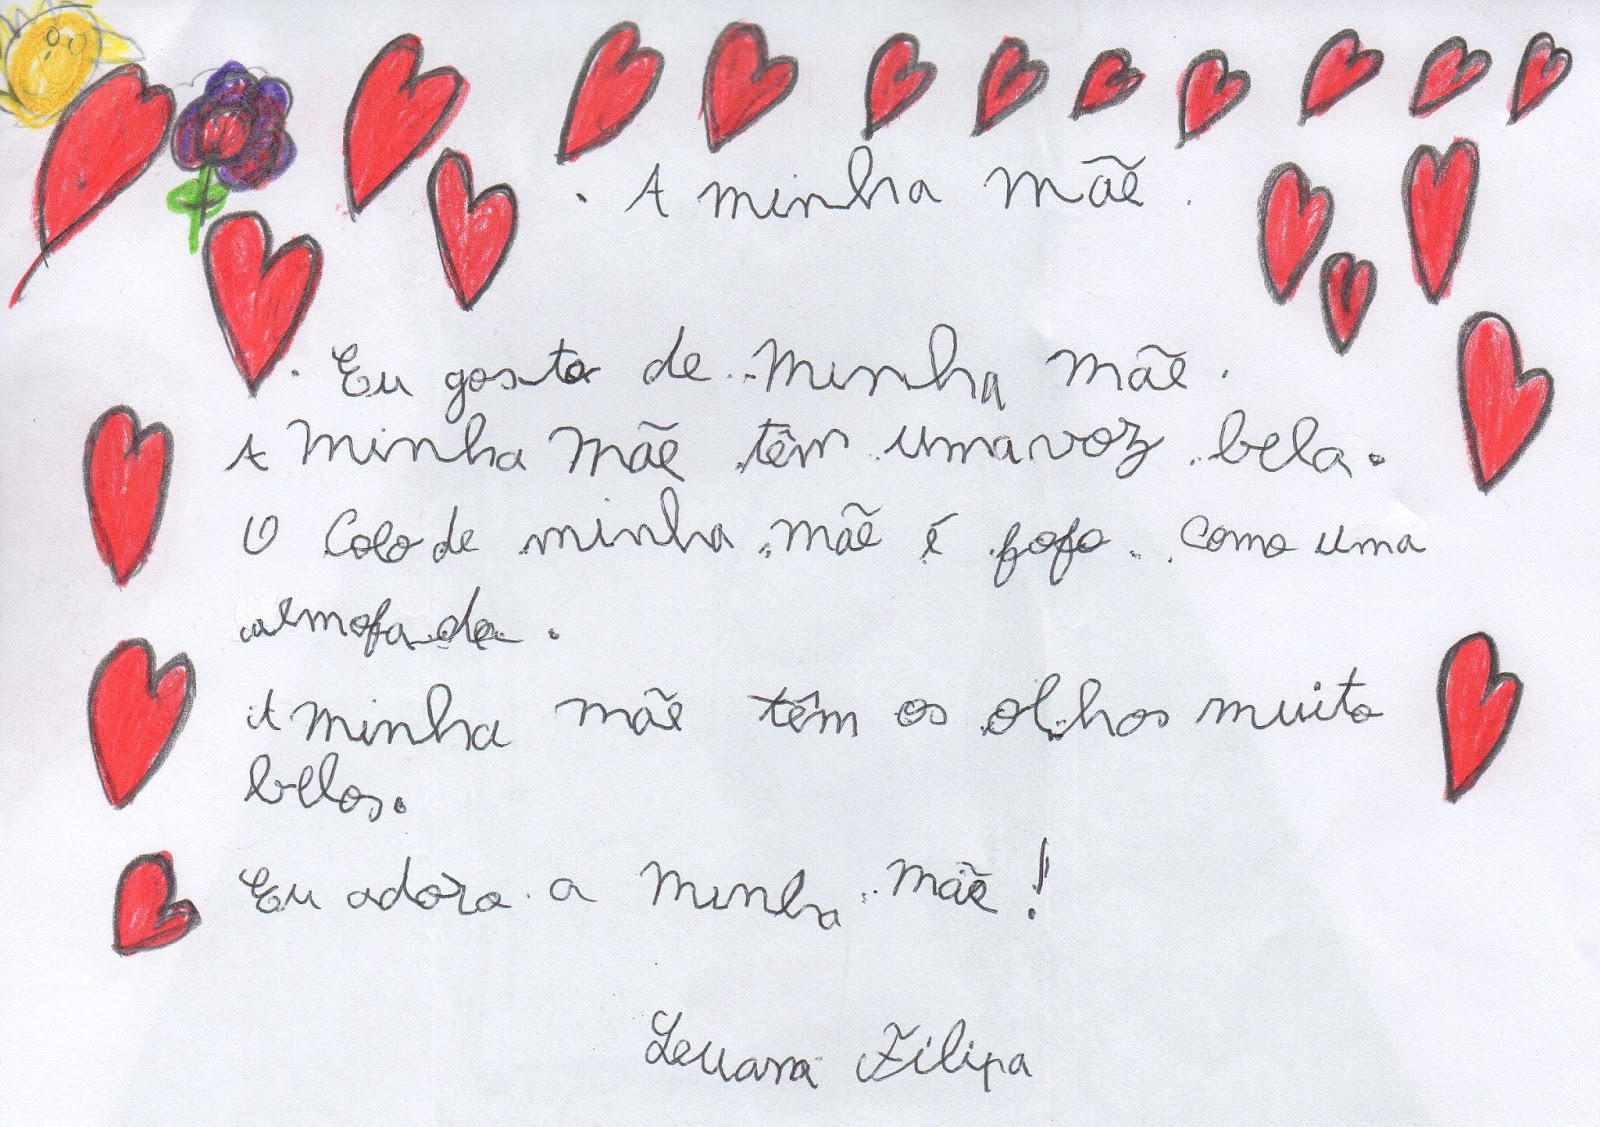 . A minha mãe.
. Eu gosto de minha mãe.
A minha mãe têm uma voz bela.
O Colo de minha mãe é fofo. como uma
almofada.
A minha mãe têm os olhos muito
belos.
Eu adora a minha mãe!
Leuana Filipa